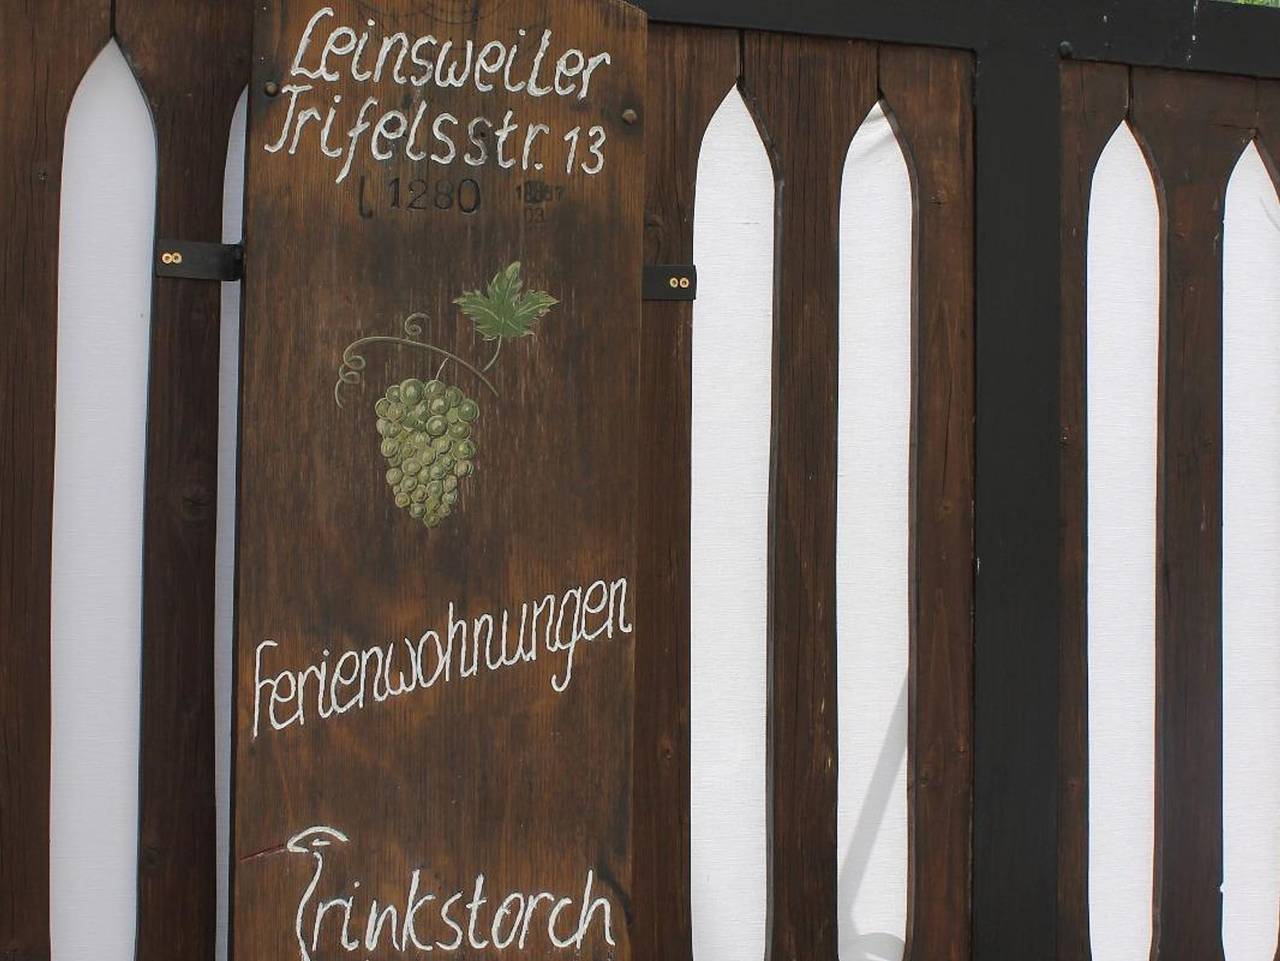 Leinsweiler
Trifelsstr. 13
1280
Ferienwohnungen
Trinkstorch